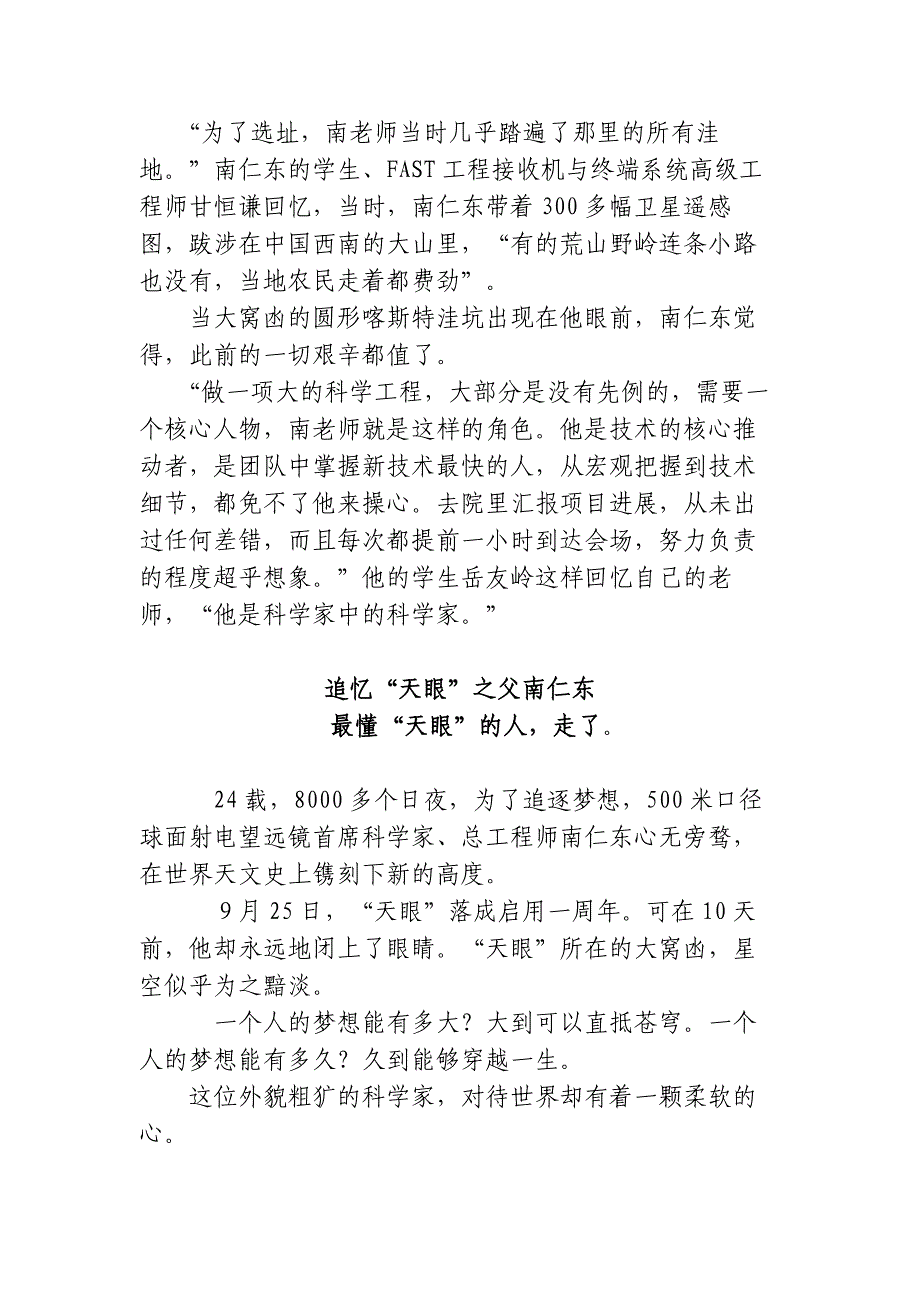 “为了选址，南老师当时几乎踏遍了那里的所有洼
地。”南仁东的学生、FAST工程接收机与终端系统高级工
程师甘恒谦回忆，当时，南仁东带着300多幅卫星遥感
图，跋涉在中国西南的大山里，“有的荒山野岭连条小路
也没有，当地农民走着都费劲”。
当大窝凼的圆形喀斯特洼坑出现在他眼前，南仁东觉
得，此前的一切艰辛都值了。
“做一项大的科学工程，大部分是没有先例的，需要一
个核心人物，南老师就是这样的角色。他是技术的核心推
动者，是团队中掌握新技术最快的人，从宏观把握到技术
细节，都免不了他来操心。去院里汇报项目进展，从未出
过任何差错，而且每次都提前一小时到达会场，努力负责
的程度超乎想象。”他的学生岳友岭这样回忆自己的老
师，“他是科学家中的科学家。”
追忆“天眼”之父南仁东
最懂“天眼”的人，走了。
24载，8000多个日夜，为了追逐梦想，500米口径
球面射电望远镜首席科学家、总工程师南仁东心无旁骛，
在世界天文史上镌刻下新的高度。
9月25日，“天眼”落成启用一周年。可在10天
前，他却永远地闭上了眼睛。“天眼”所在的大窝凼，星
空似乎为之黯淡。
一个人的梦想能有多大？大到可以直抵苍穹。一个
人的梦想能有多久？久到能够穿越一生。
这位外貌粗犷的科学家，对待世界却有着一颗柔软的
心。